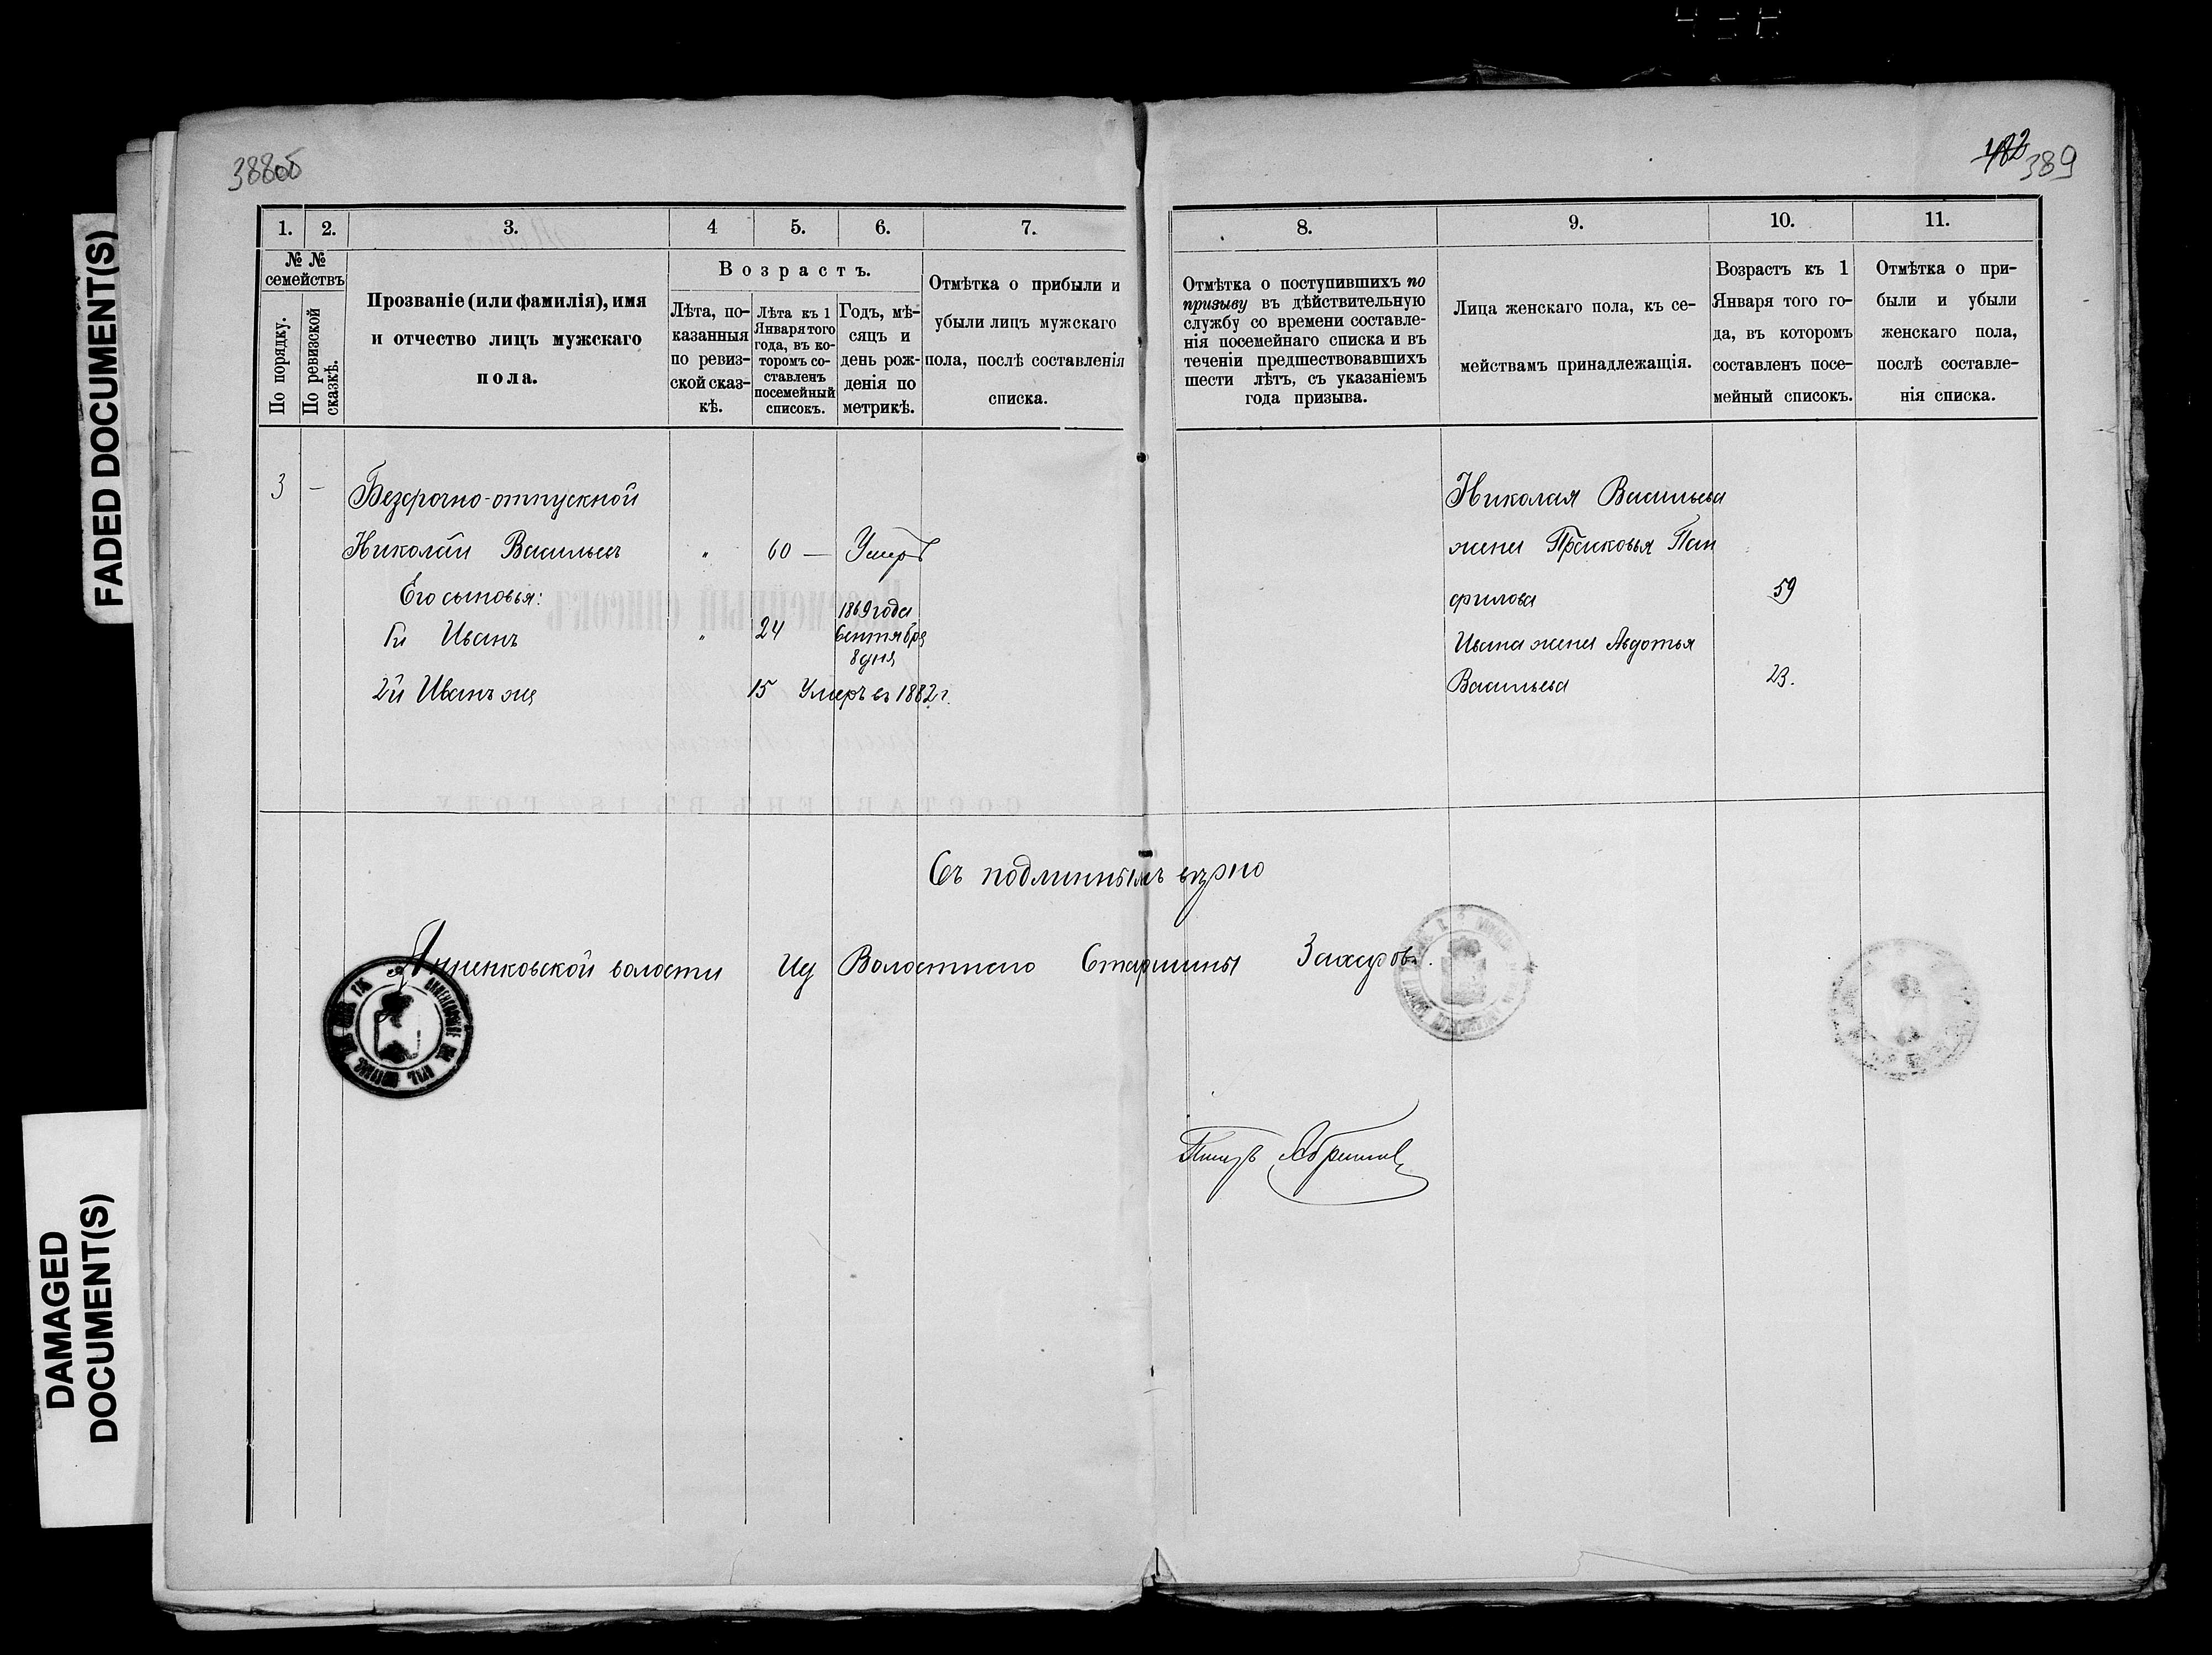 FADED DOCUMENT(S)
DAMAGED
DOCUMENT(S)
388об
1.
2.
3.
4
5.
6.
7.
№ №
семействъ
По порядку.
По ревизской
сказкѣ.
Прозваніе (или фамилія), имя
и отчество лицъ мужскаго
пола.
Возрастъ.
Лѣта, по-
казанныя
по ревиз-
ской сказ-
кѣ.
Лѣта къ 1
Января того
года, въ ко-
торомъ со-
ставленъ
посемейный
списокъ.
Годъ, мѣ-
сяцъ и
день рож-
денія по
метрикѣ.
Отмѣтка о прибыли и
убыли лицъ мужскаго
пола, послѣ составленія
списка.
3 — Безсрочно-отпускной
Николай Васильевъ " 60 — Умеръ
Его сыновья:
1й Иванъ " 24 1869 года
Сентября
8 дня
2й Иванъ же 15 Умеръ въ 1882 г.
482 389
8.
9.
10.
11.
Отмѣтка о поступившихъ по
призыву въ дѣйствительную
службу со времени составле-
нія посемейнаго списка и въ
теченіи предшествовавшихъ
шести лѣтъ, съ указаніемъ
года призыва.
Лица женскаго пола, къ се-
мействамъ принадлежащія.
Возрастъ къ 1
Января того го-
да, въ которомъ
составленъ посе-
мейный списокъ.
Отмѣтка о при-
были и убыли
женскаго пола,
послѣ составле-
нія списка.
Николая Васильева
жена Прасковья Пан
филова 59
Ивана жена Авдотья
Васильева 23.
Съ подлиннымъ вѣрно
Анненковской волости Ид Волостного Старшины Захаровъ.